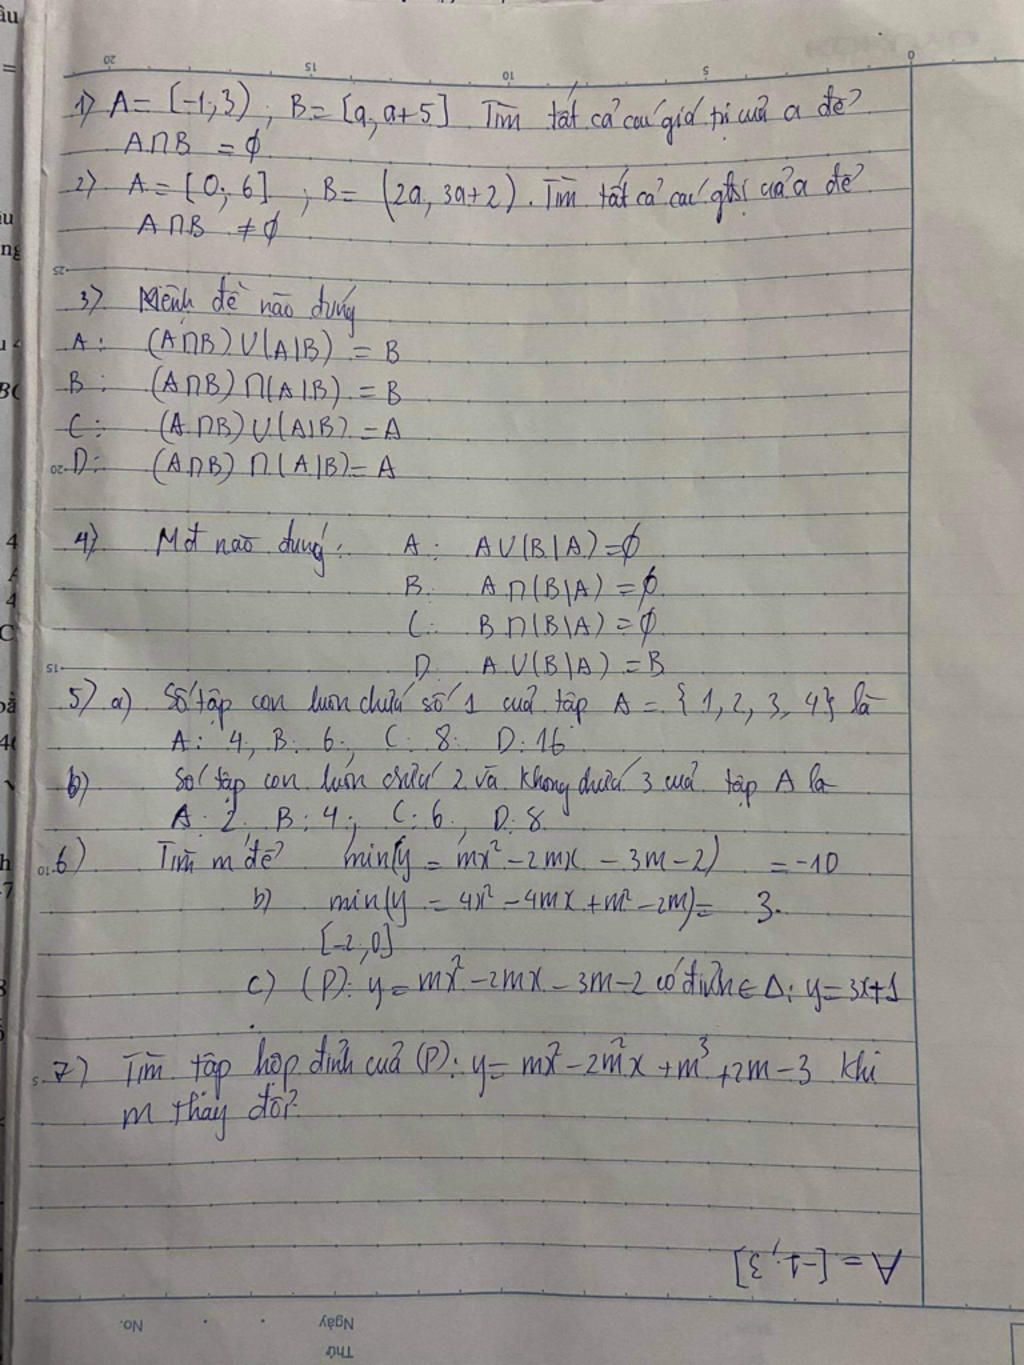 1) A = [-1; 3) ; B = [a; a+5] Tìm tất cả các giá trị của a để
A∩B = ∅
2) A = [0; 6] ; B = (2a; 3a+2). Tìm tất cả các gtrị của a để
A∩B ≠ ∅
3) Mệnh đề nào đúng
A: (A∩B)∪(A\B) = B
B: (A∩B)∩(A\B) = B
C: (A∩B)∪(A\B) = A
D: (A∩B)∩(A\B) = A
4) Mđ nào đúng: A: A∪(B\A) = ∅
B: A∩(B\A) = ∅
C: B∩(B\A) = ∅
D A∪(B\A) = B
5) a) Số tập con luôn chứa số 1 của tập A = {1, 2, 3, 4} là
A: 4, B: 6; C: 8: D: 16
b) Số tập con luôn chứa 2 và không chứa 3 của tập A là
A: 2, B: 4; C: 6, D: 8
6) Tìm m để min(y = mx² - 2mx - 3m - 2) = -10
b) min(y = 4x² - 4mx + m² - 2m) = 3.
[-2; 0]
c) (P): y = mx² - 2mx - 3m - 2 có đỉnh ∈ Δ: y = 3x+1
7) Tìm tập hợp đỉnh của (P): y = mx² - 2m²x + m³ + 2m - 3 khi
m thay đổi
A = [-1; 3]
Thứ
Ngày
No.
20 15 10 5 0
25
20
15
10
5